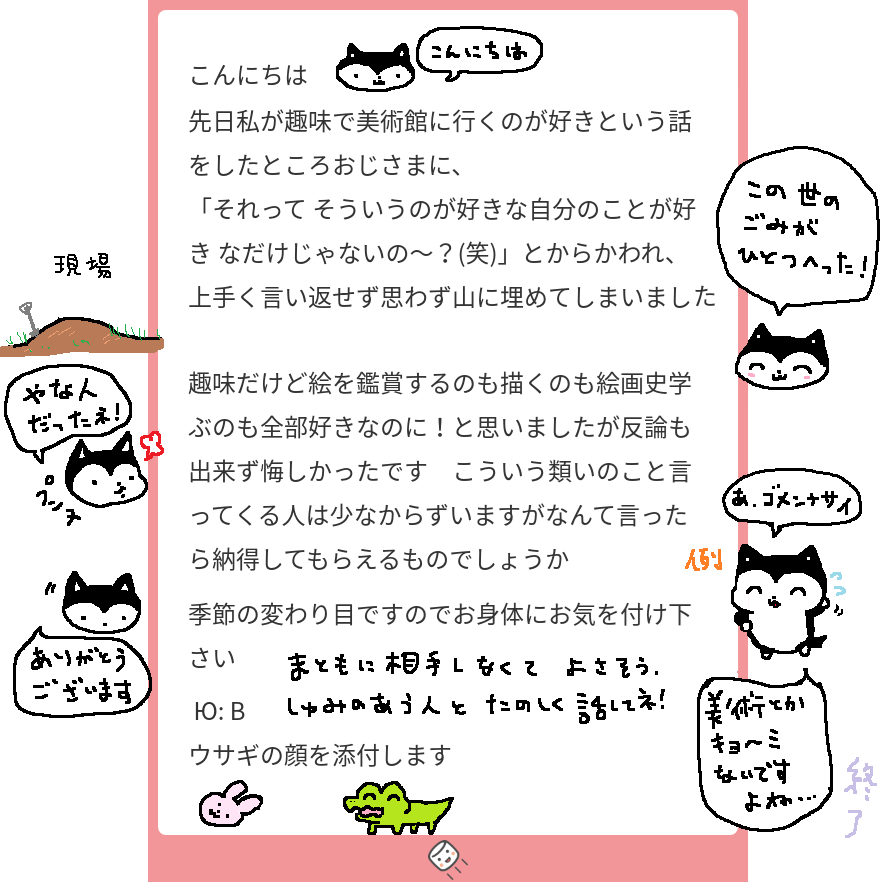 こんにちは
こんにちは
先日私が趣味で美術館に行くのが好きという話
をしたところおじさまに、
「それって そういうのが好きな自分のことが好
き なだけじゃないの〜？(笑)」とからかわれ、
上手く言い返せず思わず山に埋めてしまいました
この世の
ごみが
ひとつへった!
現場
趣味だけど絵を鑑賞するのも描くのも絵画史学
ぶのも全部好きなのに！と思いましたが反論も
出来ず悔しかったです　こういう類いのこと言
ってくる人は少なからずいますがなんて言った
ら納得してもらえるものでしょうか
やな人
だったネ!
フンヌ
あ、ゴメンナサイ
例
季節の変わり目ですのでお身体にお気を付け下
さい
ありがとう
ございます
まともに相手しなくて よさそう.
しゅみのあう人と たのしく 話してネ!
美術とか
キョーミ
ないです
よね…
Ю: B
ウサギの顔を添付します
終了